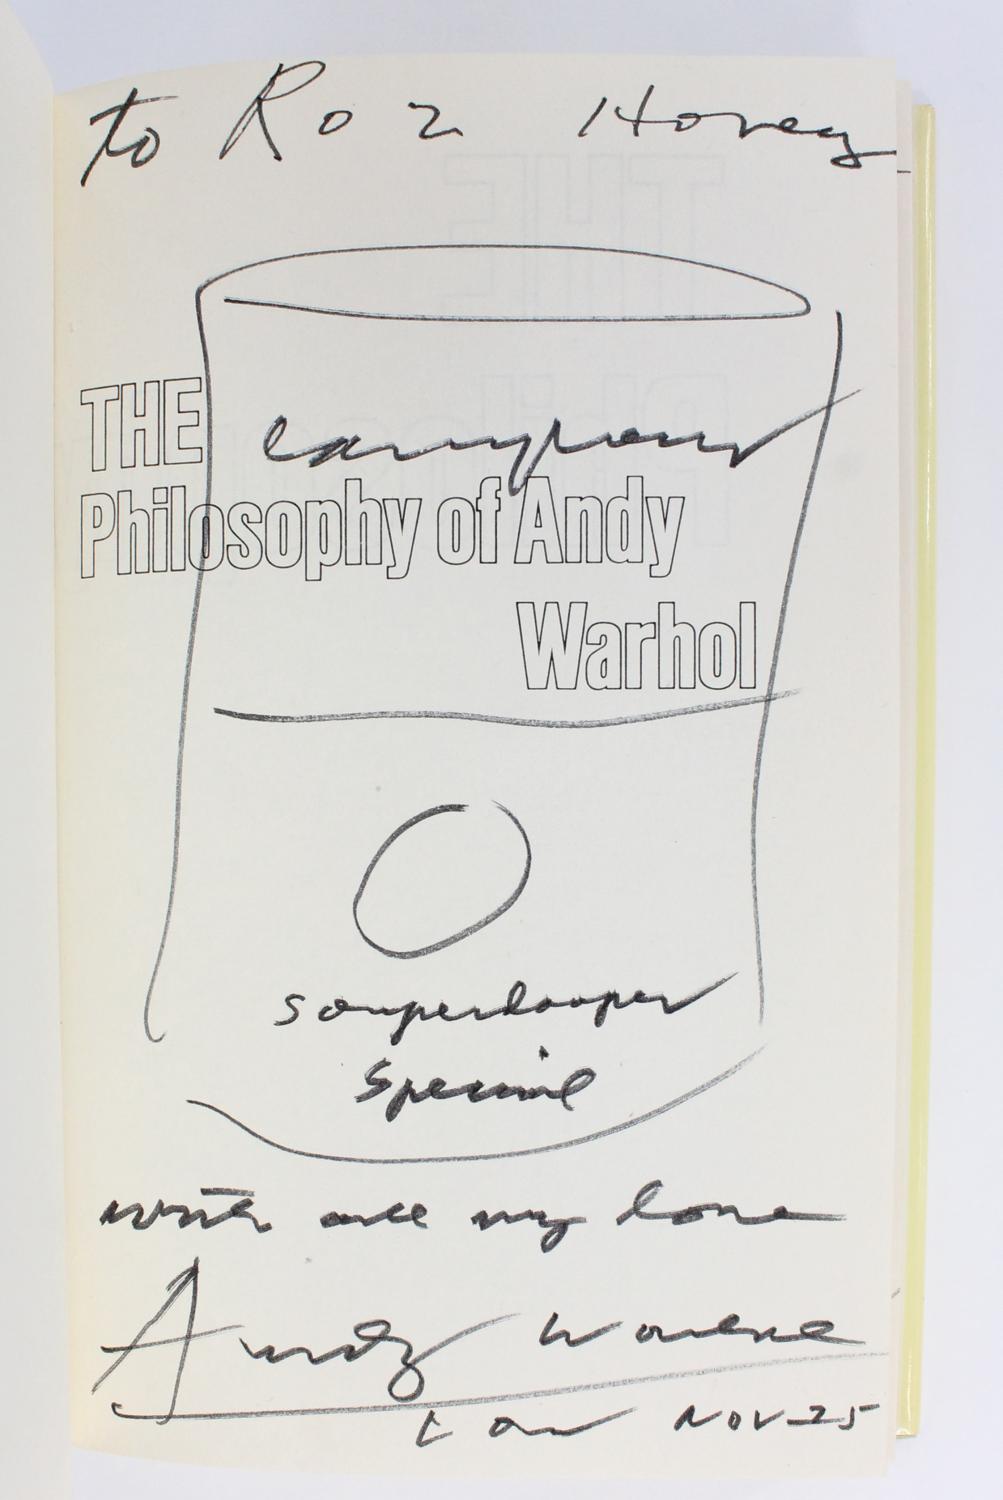 to Roz Hovey
THE
Philosophy of Andy
Warhol
souperdooper
special
with all my love
Andy Warhol
Nov 25